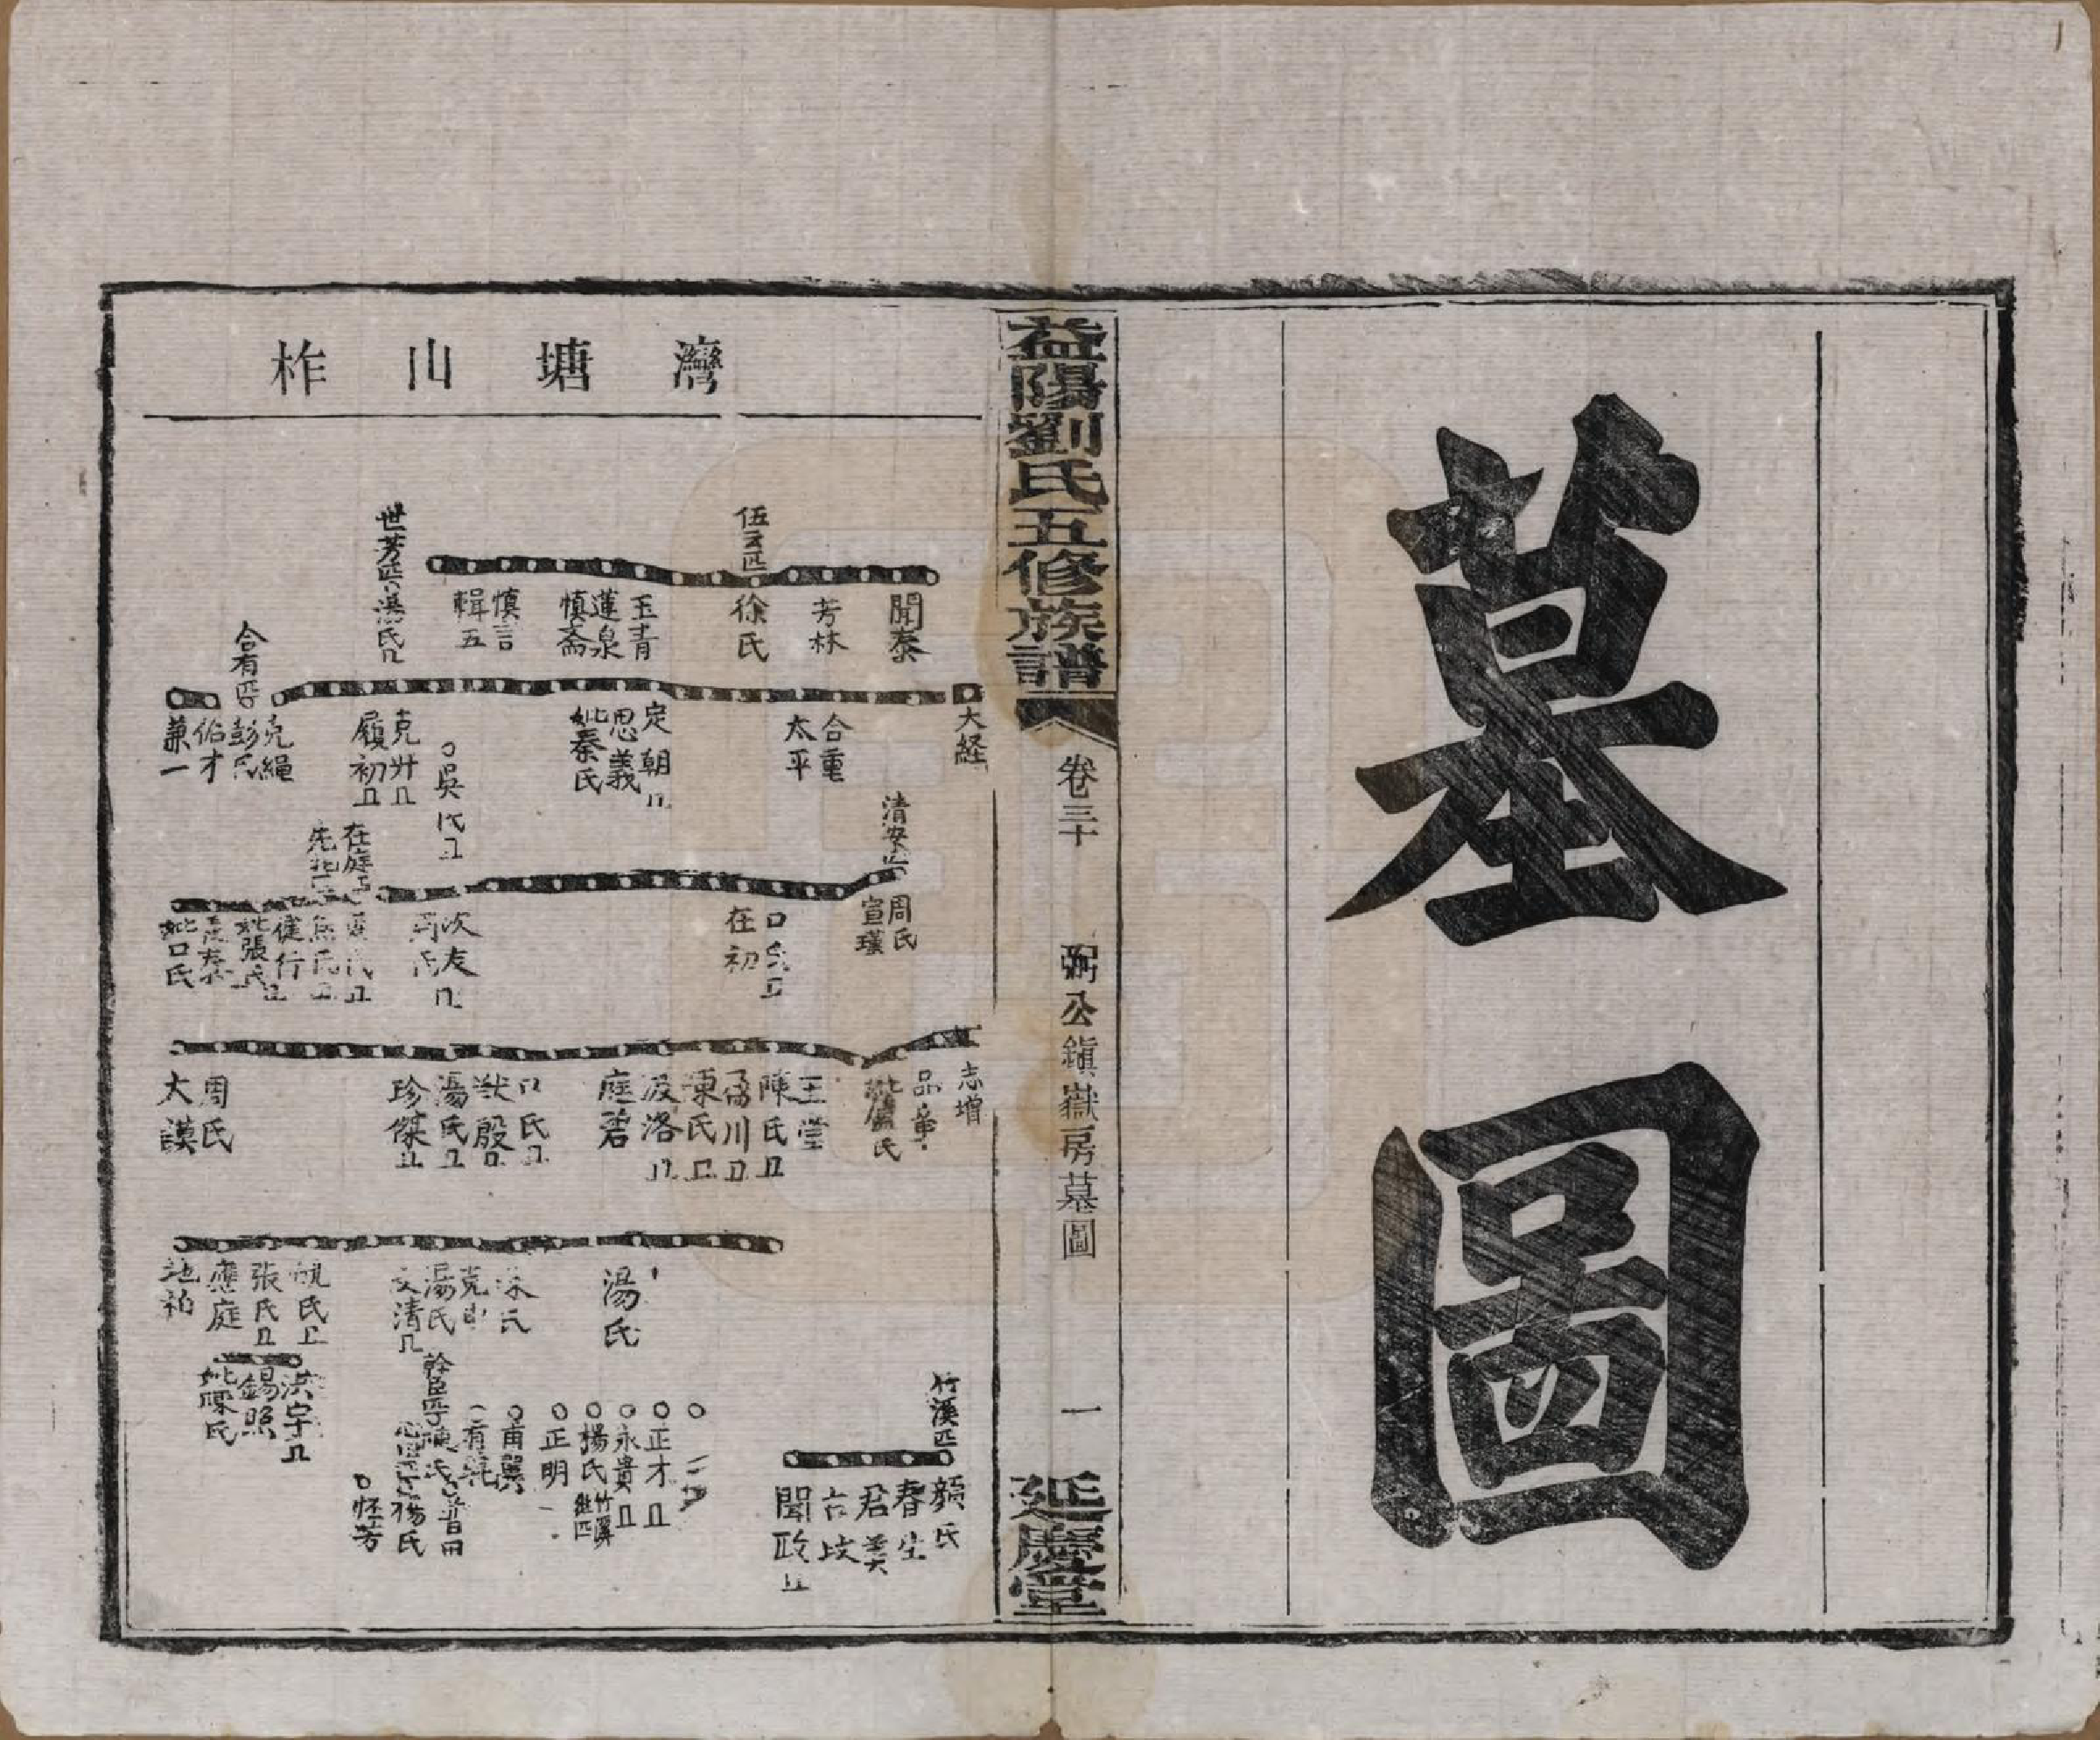 墓圖
益陽劉氏五修族譜
卷三十
弼公鎮嶽房墓圖
一
延慶堂
灣塘山柞
伍云匹
世芳匹
湯氏
聞泰
芳林
徐氏
玉青
蓮泉
慎齋
慎言
輯五
合有匹
大経
合重
太平
定朝
思義
妣秦氏
克廾
履初
克繩
彭氏
佑才
兼一
吳氏
清安
在庭
周氏
宣瑾
口氏
在初
次友
健行
妣張氏
妣口氏
志增
品章
玉堂
陳氏
禹川
陳氏
汲洛
庭碧
口氏
猷殷
湯氏
珍傑
周氏
大謨
湯氏
朱氏
克中
湯氏
文清
張氏
應庭
地柏
洪宇
錫照
妣陳氏
幹臣
竹溪匹
顏氏
春生
君美
聞政
正才
永貴
楊氏
竹溪
正明
甫翼
陳氏
普田
楊氏
怪芳